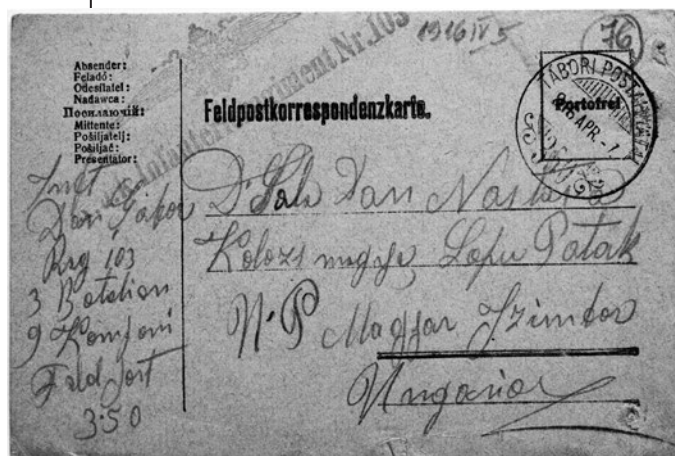 1916 IV 5
76
Infanterieregiment Nr. 103
Absender:
Feladó:
Odesílatel:
Nadawca:
Посилаючій:
Mittente:
Pošiljatelj:
Pošiljač:
Presentator:
Feldpostkorrespondenzkarte.
TÁBORI POSTAHIVATAL
Portofrei
916 APR. - 7
Dan Gabor
Rrg 103
3 Batalion
9 Komponi
Feld Post
350
Dan
Kolozs megye Lopu Patak
N. P Magyar
Ungaria